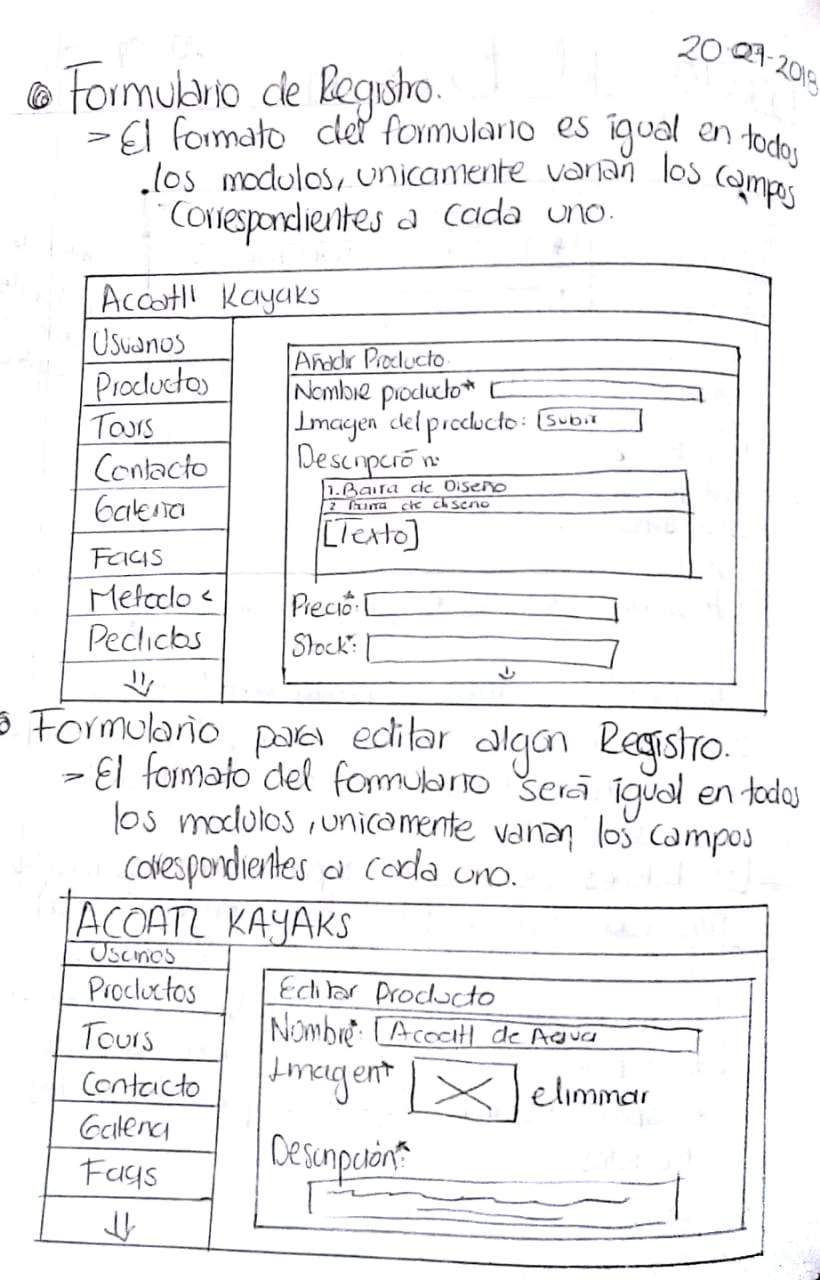 20-07-2018
Formulario de Registro.
→ El formato del formulario es igual en todos
los modulos, unicamente varian los campos
Correspondientes a cada uno.
Acoatl Kayaks
Usuarios
Productos
Tours
Contacto
Galeria
Faqs
Metodos
Pedidos
Añadir Producto.
Nombre producto*
Imagen del producto: Subir
Descripción:
1. Barra de Diseño
2 Barra de diseño
[Texto]
Precio*:
Stock*:
Formulario para editar algun Registro.
→ El formato del formulario será igual en todos
los modulos, unicamente varian los campos
correspondientes a cada uno.
ACOATL KAYAKS
Usuarios
Productos
Tours
Contacto
Galeria
Faqs
Editar Producto
Nombre*: Acoatl de Agua
Imagen* eliminar
Descripción*: